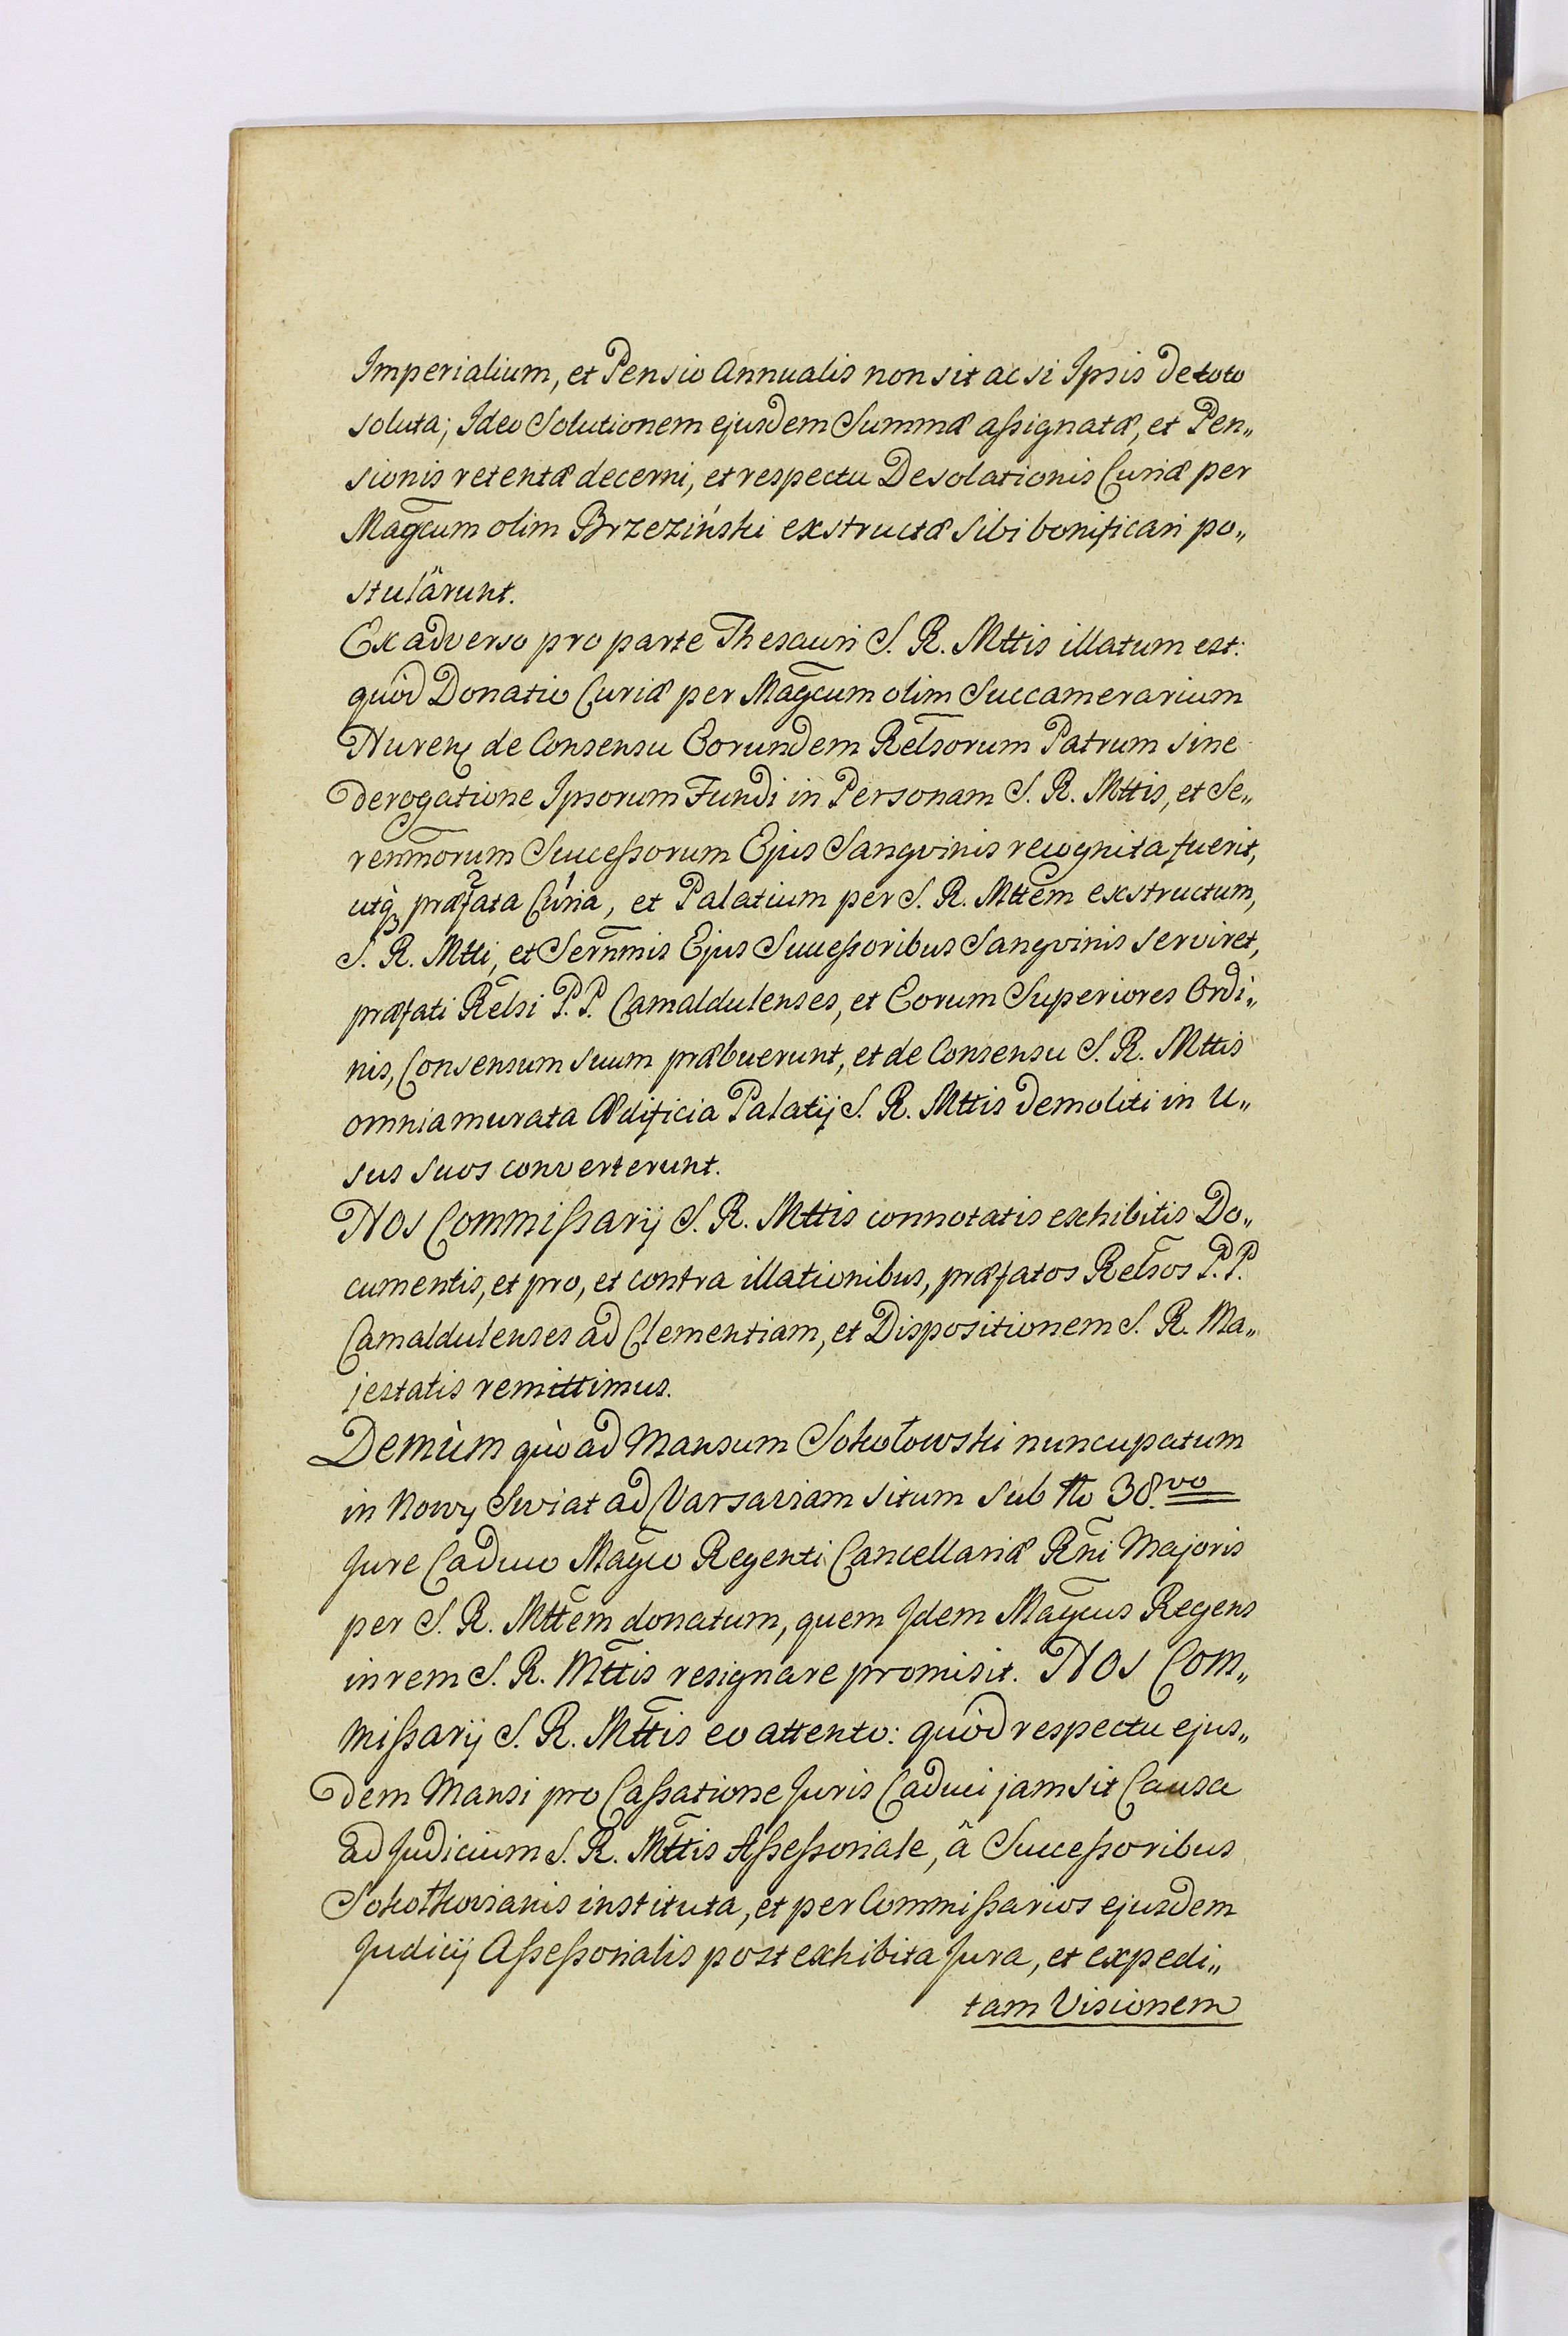 Imperialium, et Pensio Annualis non sit ac si Ipsis de toto
soluta; Ideo Solutionem ejusdem Summæ aſsignatæ, et Pen„
sionis retentæ decerni, et respectu Desolationis Curiæ per
Magcum olim Brzeziński exstructæ sibi bonificari po„
stulârunt.
Ex adverso pro parte Thesauri S. R. Mttis illatum est:
quòd Donatio Curiæ per Magcum olim Succamerarium
Nuren de Consensu Eorundem Relsorum Patrum sine
derogatione Ipsorum Fundi in Personam S. R. Mttis, et Se„
renmorum Succeſsorum Ejus Sangvinis recognita fuerit,
utq præfata Curia, et Palatium per S. R. Mttem exstructum,
S. R. Mtti, et Sernmis Ejus Succeſsoribus Sangvinis serviret,
præfati Relsi P. P. Camaldulenses, et Eorum Superiores Ordi„
nis, Consensum suum præbuerunt, et de Consensu S. R. Mttis
omnia murata Ædificia Palatij S. R. Mttis demoliti in U„
sus suos converterunt.
Nos Commiſsarij S. R. Mttis connotatis exhibitis Do„
cumentis, et pro, et contra illationibus, præfatos Relsos P. P.
Camaldulenses ad Clementiam, et Dispositionem S. R. Ma„
jestatis remittimus.
Demùm quò ad Mansum Sokołowski nuncupatum
in Nowy Swiat ad Varsaviam situm sub No 38.vo
Jure Caduco Magco Regenti Cancellariæ Rni Majoris
per S. R. Mttem donatum, quem Jdem Magcus Regens
in rem S. R. Mttis resignare promisit. Nos Com„
miſsarij S. R. Mttis eo attento: quòd respectu ejus„
dem Mansi pro Caſsatione Juris Caduci jam sit Causa
ad Judicium S. R. Mttis Aſseſsoriale, â Succeſsoribus
Sokołkovianis instituta, et per Commiſsarios ejusdem
Judicij Aſseſsorialis post exhibita Jura, et expedi„
tam Visionem